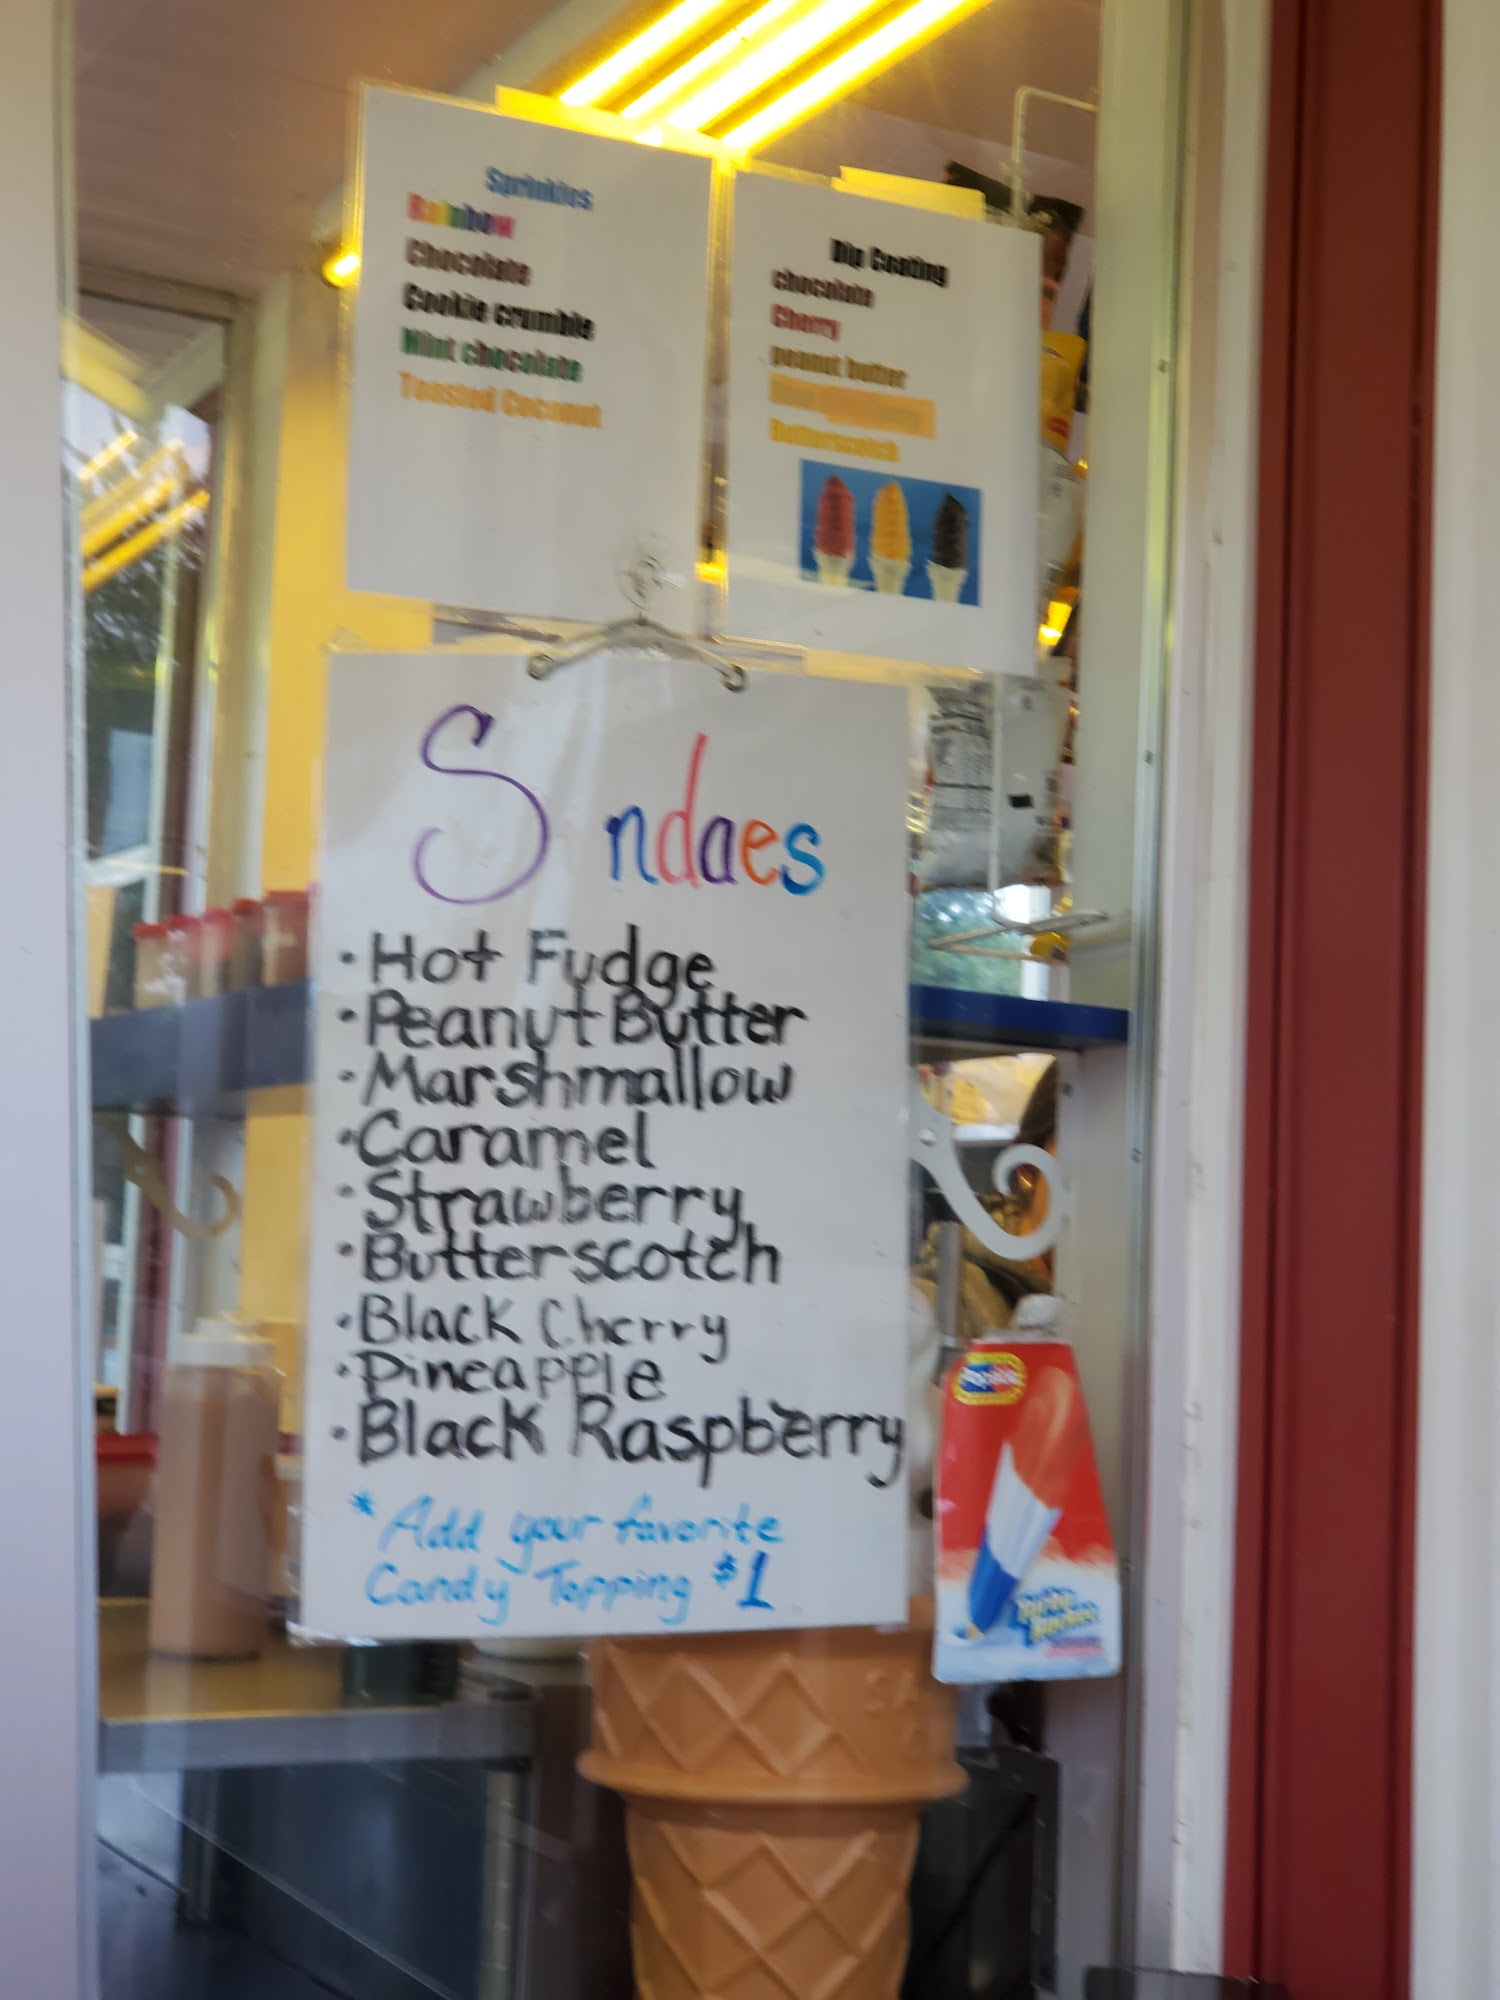 Sprinkles
Rainbow
Chocolate
Cookie crumble
Mint chocolate
Toasted Coconut
Dip Coating
chocolate
Cherry
peanut butter
Butterscotch
S ndaes
• Hot Fudge
• Peanut Butter
• Marshmallow
• Caramel
• Strawberry
• Butterscotch
• Black Cherry
• Pineapple
• Black Raspberry
* Add your favorite
Candy Topping $1